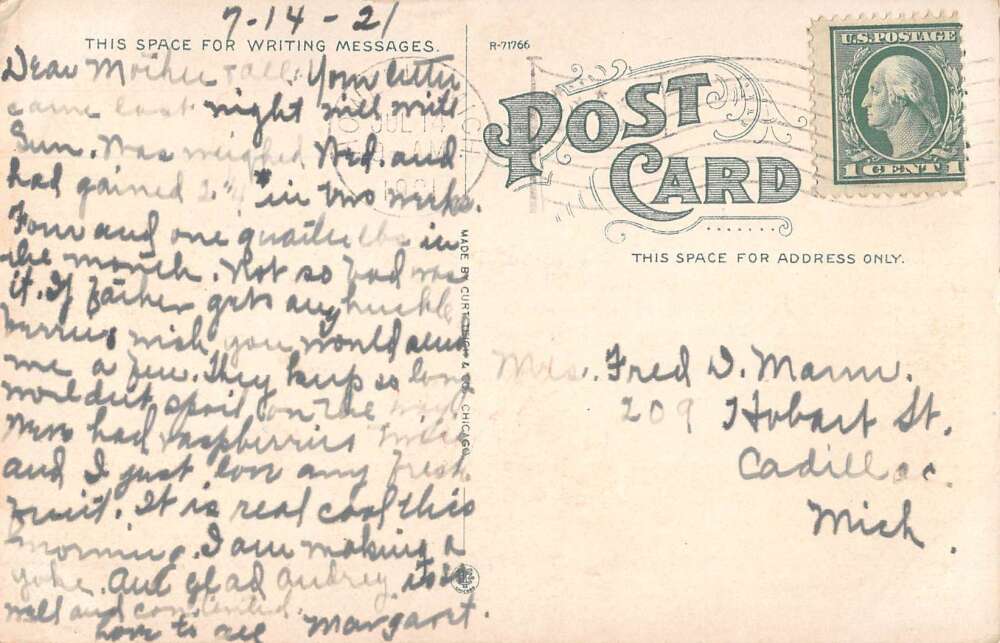 7-14-21
THIS SPACE FOR WRITING MESSAGES.
Dear Mother & all: Your letter
came last night will write
Sun. Was weighed Wed. and
had gained 2 3/4# in two weeks.
Four and one quarter lbs in
the month. Not so bad was
it. If Father gets any huckle
berries wish you would send
me a few. They keep so long
wouldn't spoil on the way.
Have had raspberries twice
and I just love any fresh
fruit. It is real cool this
morning. I am making a
yoke. Am glad Audrey is so
well and contented.
Love to all Margaret.
MADE BY CURT TEICH & CO. CHICAGO
R-71766
POST CARD
THIS SPACE FOR ADDRESS ONLY.
JUL 14
AM
1921
MICH
U.S. POSTAGE
1 CENT 1
Mrs. Fred D. Mann.
209 Hobart St.
Cadillac.
Mich.